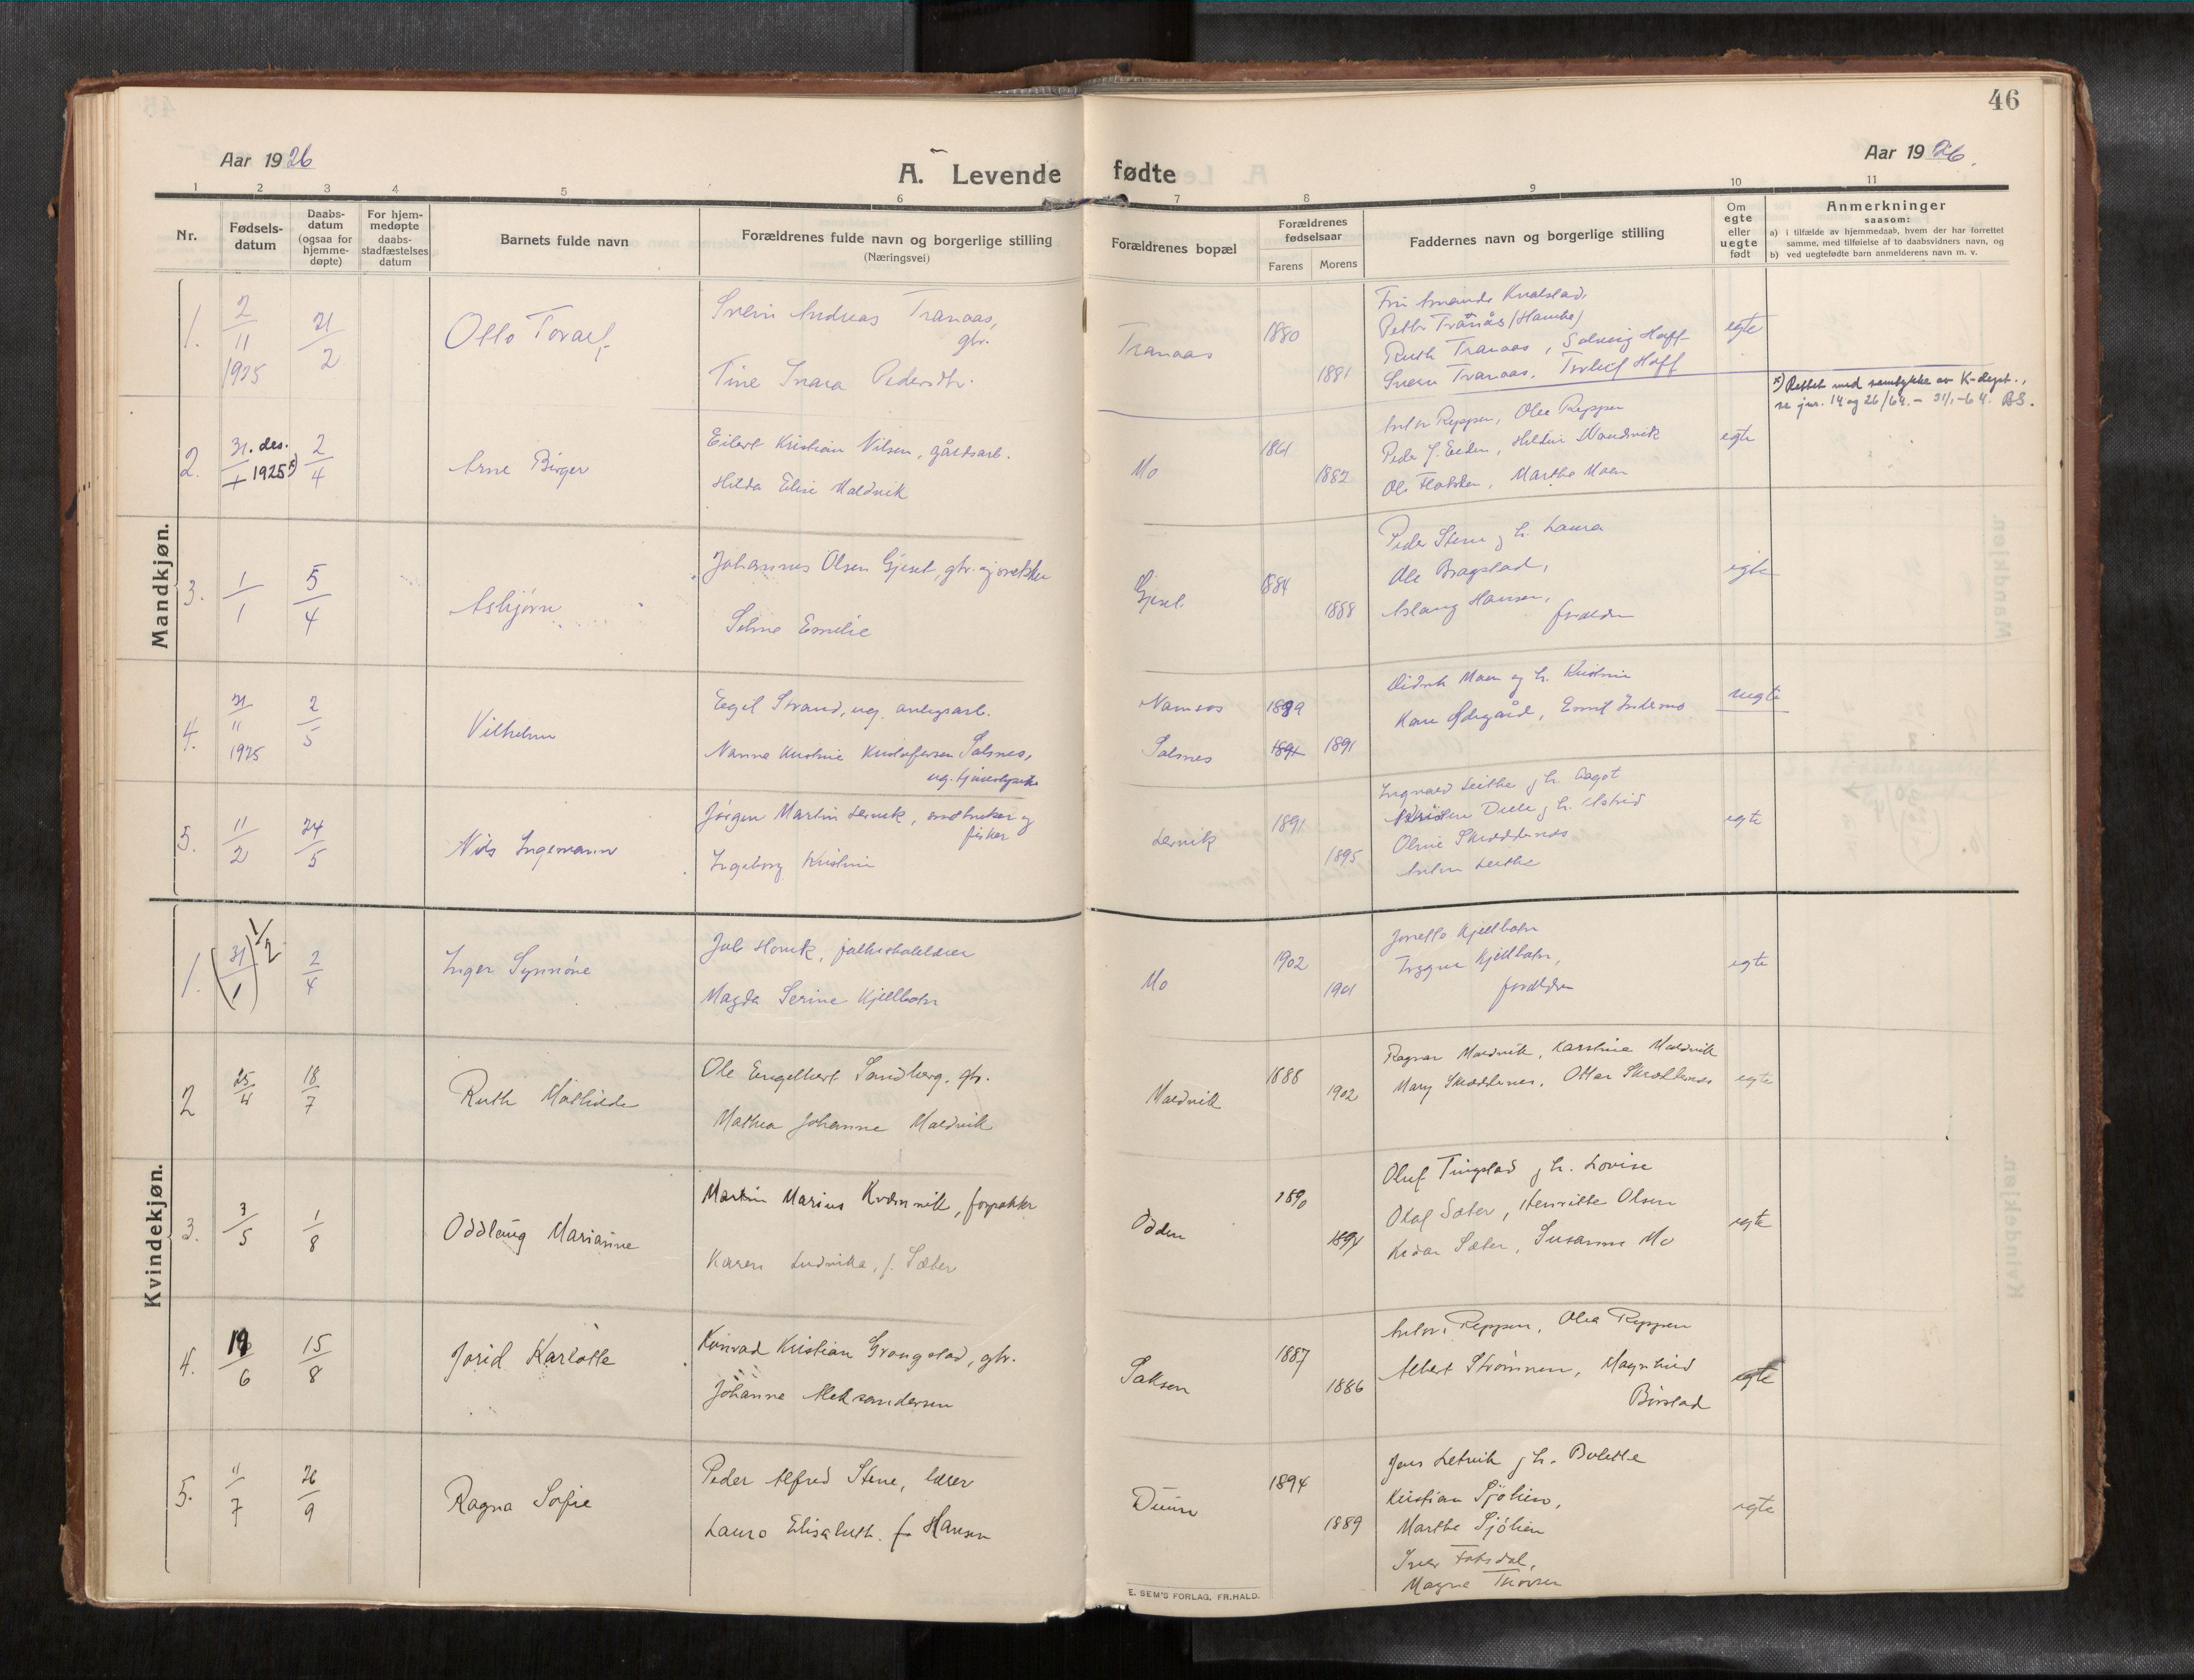 46
Aar 1926
A. Levende fødte
Aar 1926.
1 2 3 4 5 6 7 8 9 10 11
Nr.
Fødsels-datum
Daabs-datum (ogsaa for hjemme-døpte)
For hjem-medøpte daabs-stadfæstelses datum
Barnets fulde navn
Forældrenes fulde navn og borgerlige stilling
(Næringsvei)
Forældrenes bopæl
Forældrenes fødselsaar
Farens Morens
Faddernes navn og borgerlige stilling
Om egte eller uegte født
Anmerkninger
saasom:
a) i tilfælde av hjemmedaab, hvem der har forrettet
samme, med tilføielse af to daabsvidners navn, og
b) ved uegtefødte barn anmelderens navn m. v.
Mandkjøn.
1. 2/11 1925 21/2 Otto Torarf
Svein Andreas Tranaas, gbr.
Tine Snara Pedersdtr.
Tranaas 1880 1881
Petter Tranås
Ruth Tranaas, Solveig Hoff
Svein Tranaas, Torleif Hoff
egte
2. 31. des. 1925 x) 2/4 Arne Birger
Eilert Kristian Nilsen, gårdsarb.
Hilda Elise Maldvik
Mo 1882
Anton Reppen, Olea Reppen
Marthe Moen
egte
x) Rettet med samtykke av K-dept.,
se jnr. 14 og 26/64. - 31/1-64. BS.
3. 1/1 5/4 Asbjørn
Johannes Olsen Gjeset, gbr. og snekker
Selma Emilie
Gjeset 1884 1888
Peder Stene og h. Laura
Ole Bragstad,
Aslaug Hansen,
foreldre
egte
4. 21/11 1925 2/5 Vilhelm
Egil Strand, ug. anlegsarb.
Nanna Kristine Kristofersen Salsnes,
ug. tjenestepike
Namsos
Salsnes 1891 1891
Didrik Moen og h. Kristine
Kare Ødegård, Emil Indermo
uegte
5. 11/2 24/5 Nils Ingemann
Jørgen Martin Lervik, småbruker og
fisker
Ingeborg Kristine
Lervik 1891 1895
Ingvald Leithe og h. Aagot
Oline Skredderås
Anton Leithe
egte
Kvindekjøn.
1. (31/1) 1/2 2/4 Inger Synnøve
Magda Serine Kjelbotn
Mo 1902 1901
Jonetta Kjelbotn
Trygve Kjelbotn,
foreldre
egte
2 25/4 18/7 Ruth Mathilde
Ole Engelbert Sandberg, gbr.
Mathea Johanne Maldvik
Maldvik 1888 1902
Ragnar Maldvik, Karstine Maldvik
egte
3. 3/5 1/8 Oddlaug Marianne
Martin Marius Kvernvik, forpakter
Karen Ludvika, f. Sæter
Odden 1890 1894
Oluf Tingstad og h. Lovise
Olaf Sæter, Henriette Olsen
Kidar Sæter, Susanne Mo
egte
4. 19/6 15/8 Jorid Karlotte
Konrad Kristian Grongstad, gbr.
Johanne Aleksandersen
Salsen 1887 1886
Anton Reppen, Olea Reppen
Albert Strømmen, Magnhild
Børstad
egte
5. 11/7 26/9 Ragna Sofie
Peder Alfred Stene, lærer
Laura Elisabeth f. Hansen
Duun 1894 1889
Jens Letvik og h. Bolette
Kristian Sjølien,
Marthe Sjølien
Iver Fossdal,
Magne Thorsen
egte
E. SEM'S FORLAG, FR.HALD.